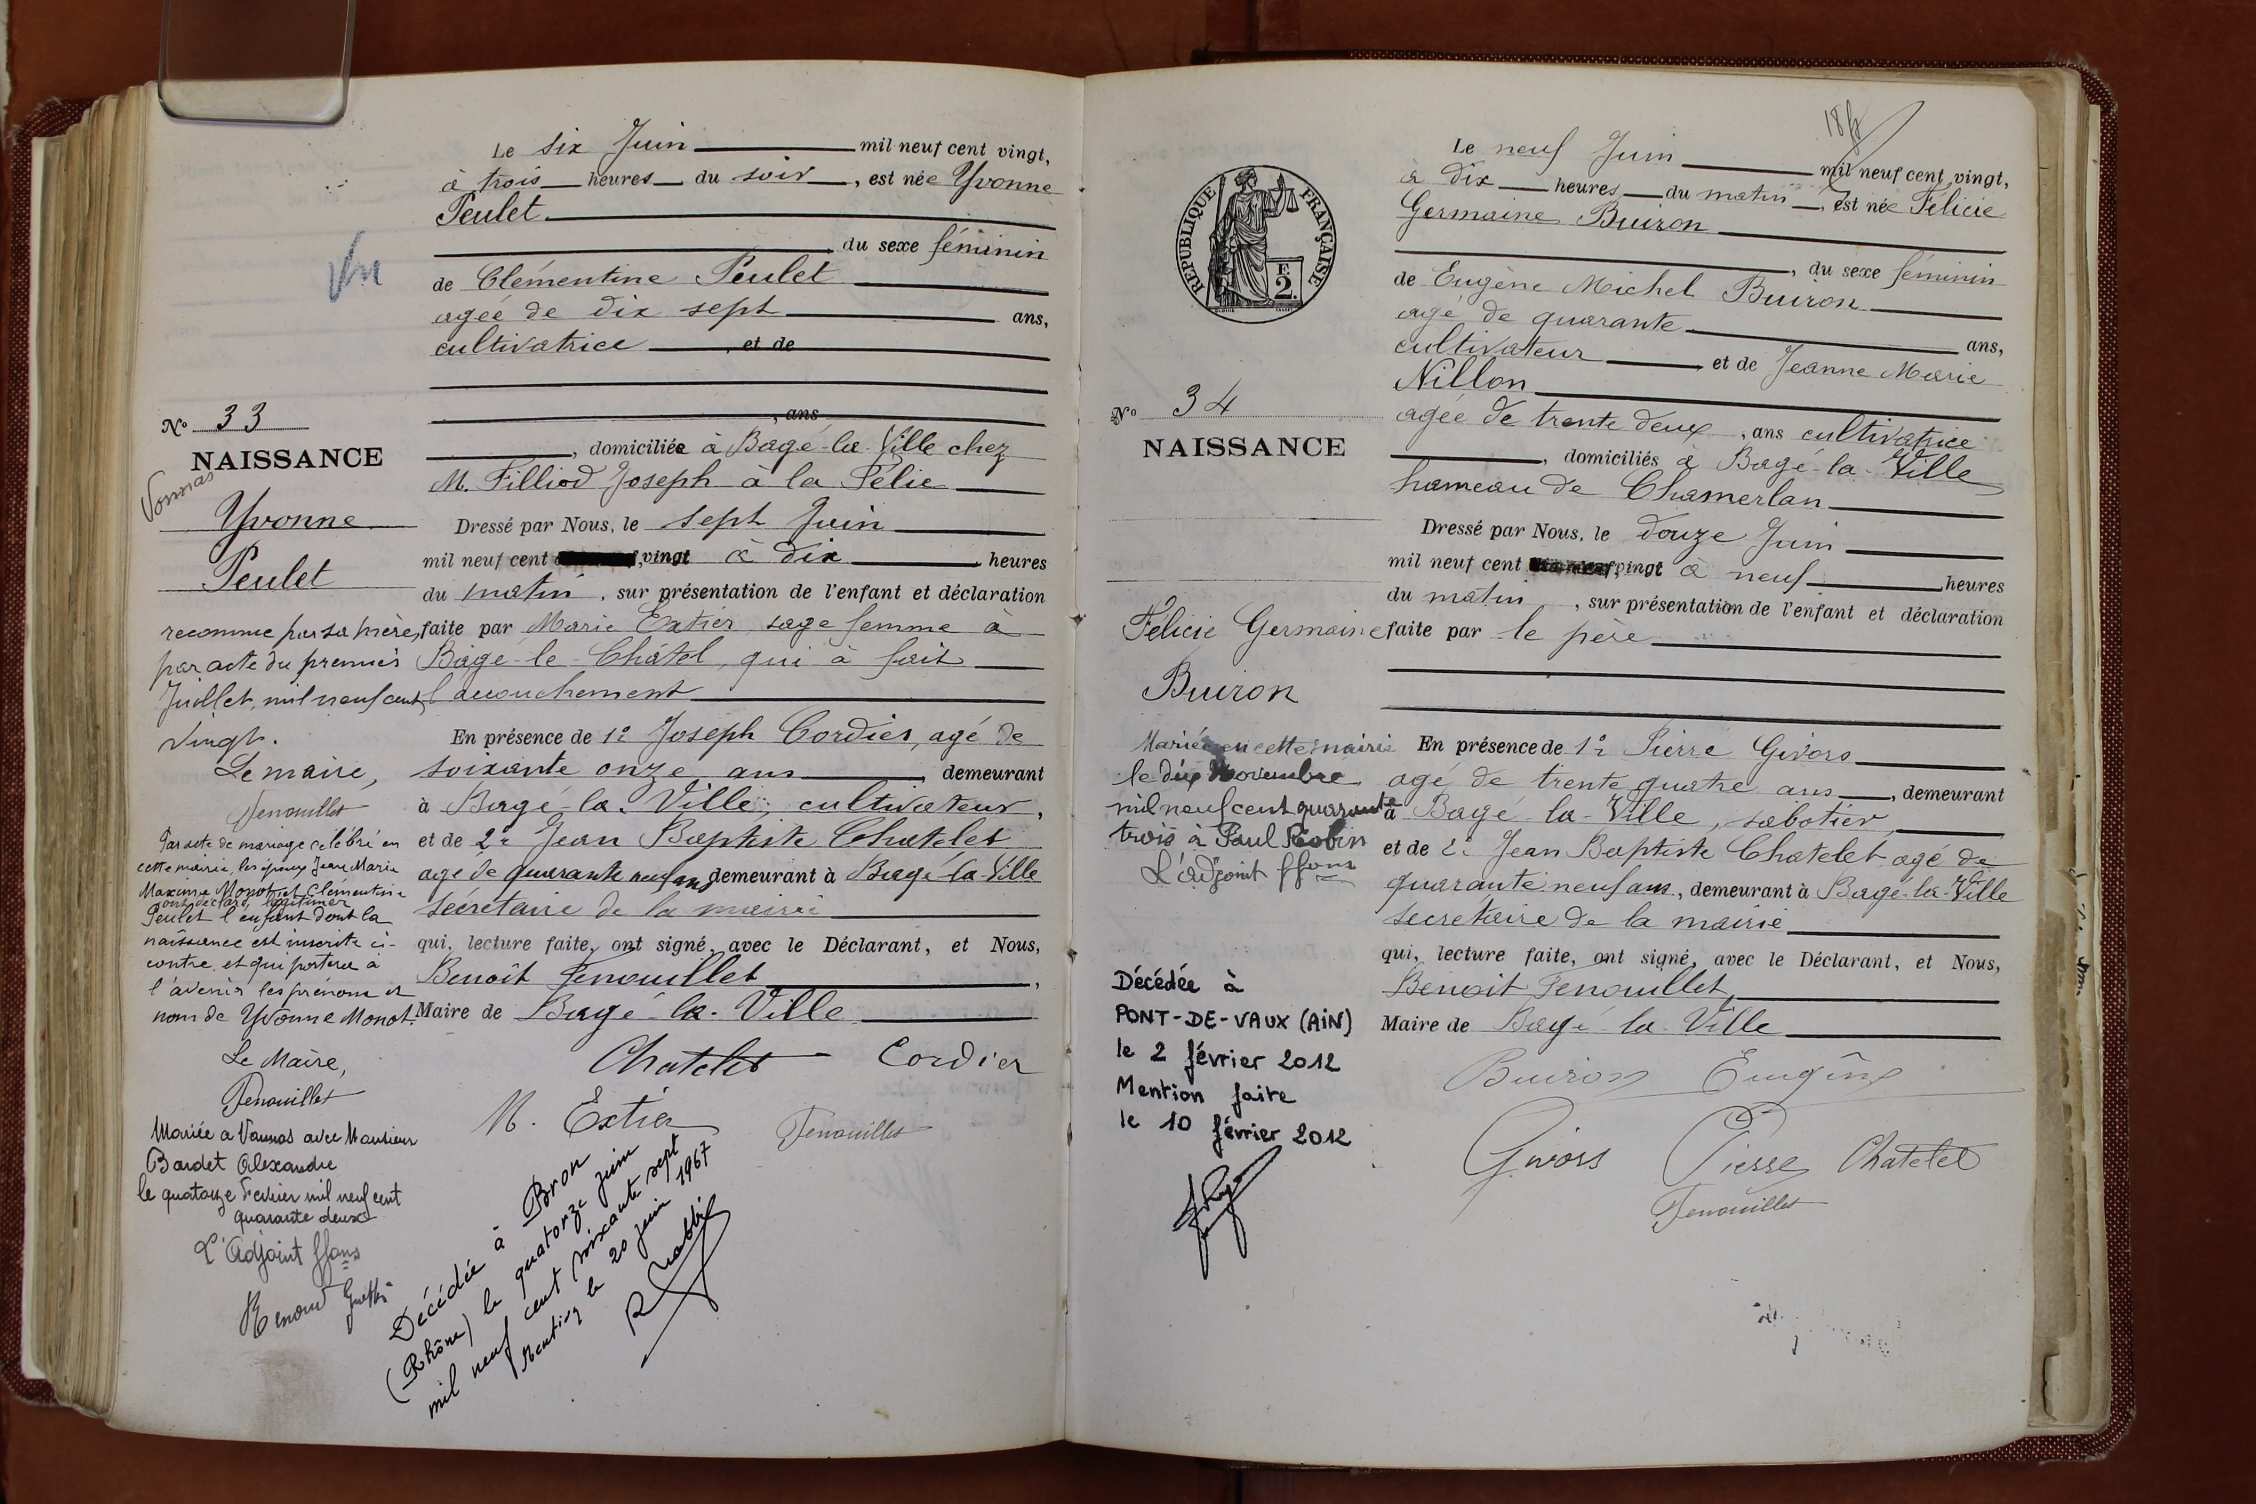 Le six Juin mil neuf cent vingt,
à trois heures du soir, est née Yvonne
Peulet
du sexe féminin
de Clémentine Peulet
agée de dix sept ans,
cultivatrice, et de
, ans
, domiciliée à Bagé-la-Ville chez
M. Filliod Joseph à la Pélie
Dressé par Nous, le sept Juin
mil neuf cent vingt à dix heures
du matin, sur présentation de l'enfant et déclaration
faite par Marie Extier sage femme à
Bâgé-le-Châtel, qui à fait
l'accouchement
En présence de 1° Joseph Cordier, agé de
soixante onze ans, demeurant
à Bagé-la-Ville, cultivateur,
et de 2° Jean Baptiste Chatelet
agé de quarante neuf ans demeurant à Bagé-la-Ville
secrétaire de la mairie
qui, lecture faite, ont signé, avec le Déclarant, et Nous,
Benoît Fenouillet,
Maire de Bagé-la-Ville
Chatelet Cordier
M. Extier Fenouillet
N° 33
NAISSANCE
Vonnas
Yvonne
Peulet
reconnue par sa mère,
par acte du premier
Juillet, mil neuf cent
vingt.
Le maire,
Fenouillet
Par acte de mariage célébré en
cette mairie, les époux Jean Marie
Maxime Monot et Clémentine
ont déclaré légitimer
Peulet l'enfant dont la
naissance est inscrite ci-
contre et qui portera à
l'avenir les prénom et
nom de Yvonne Monot.
Le Maire,
Fenouillet
Mariée a Vonnas avec Monsieur
Bardet Alexandre
le quatorze Fevrier mil neuf cent
quarante deux
L'Adjoint ffons
Renoud
Décédée à Bron
(Rhône) le quatorze juin
mil neuf cent soixante sept
Mention le 20 juin 1967
18
Le neuf Juin mil neuf cent vingt,
à dix heures du matin, est née Félicie
Germaine Buiron
, du sexe féminin
de Eugène Michel Buiron
agé de quarante ans,
cultivateur, et de Jeanne Marie
Nillon
agée de trente deux, ans cultivatrice
, domiciliés à Bagé-la-Ville
hameau de Chamerlan
Dressé par Nous, le douze Juin
mil neuf cent vingt à neuf heures
du matin, sur présentation de l'enfant et déclaration
faite par le père
En présence de 1° Pierre Givors
agé de trente quatre ans, demeurant
à Bagé-la-Ville, sabotier,
et de 2° Jean Baptiste Chatelet agé de
quarante neuf ans, demeurant à Bagé-la-Ville
secrétaire de la mairie
qui, lecture faite, ont signé, avec le Déclarant, et Nous,
Benoit Fenouillet,
Maire de Bagé-la-Ville
Buiron Eugène
Givors Pierre Chatelet
Fenouillet
REPUBLIQUE FRANÇAISE
F
2
N° 34
NAISSANCE
Félicie Germaine
Buiron
Mariée en cette mairie
le dix Novembre
mil neuf cent quarante
trois à Paul Robin
L'adjoint ffons
Décédée à
PONT-DE-VAUX (AiN)
le 2 février 2012
Mention faite
le 10 février 2012